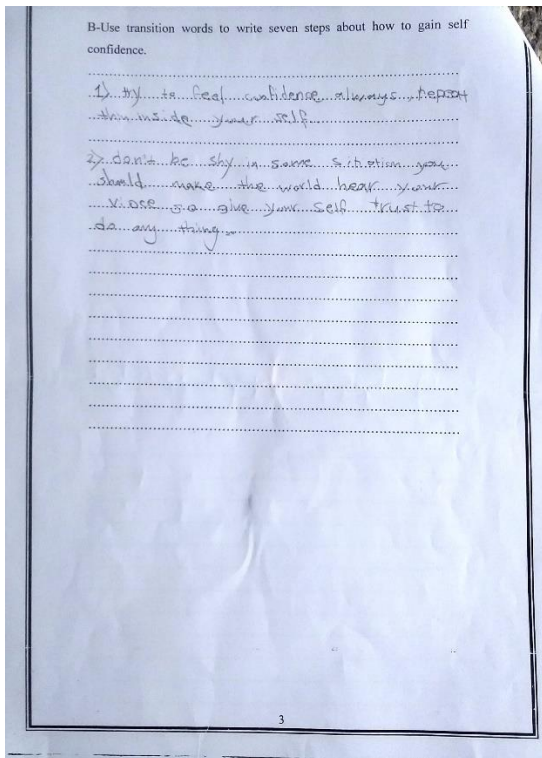 B-Use transition words to write seven steps about how to gain self
confidence.
1) try to feel confidence always repeat
this inside your self
2) don't be shy in some sitiotism you
should make the world hear your
viose so give your self trust to
do any thing
3